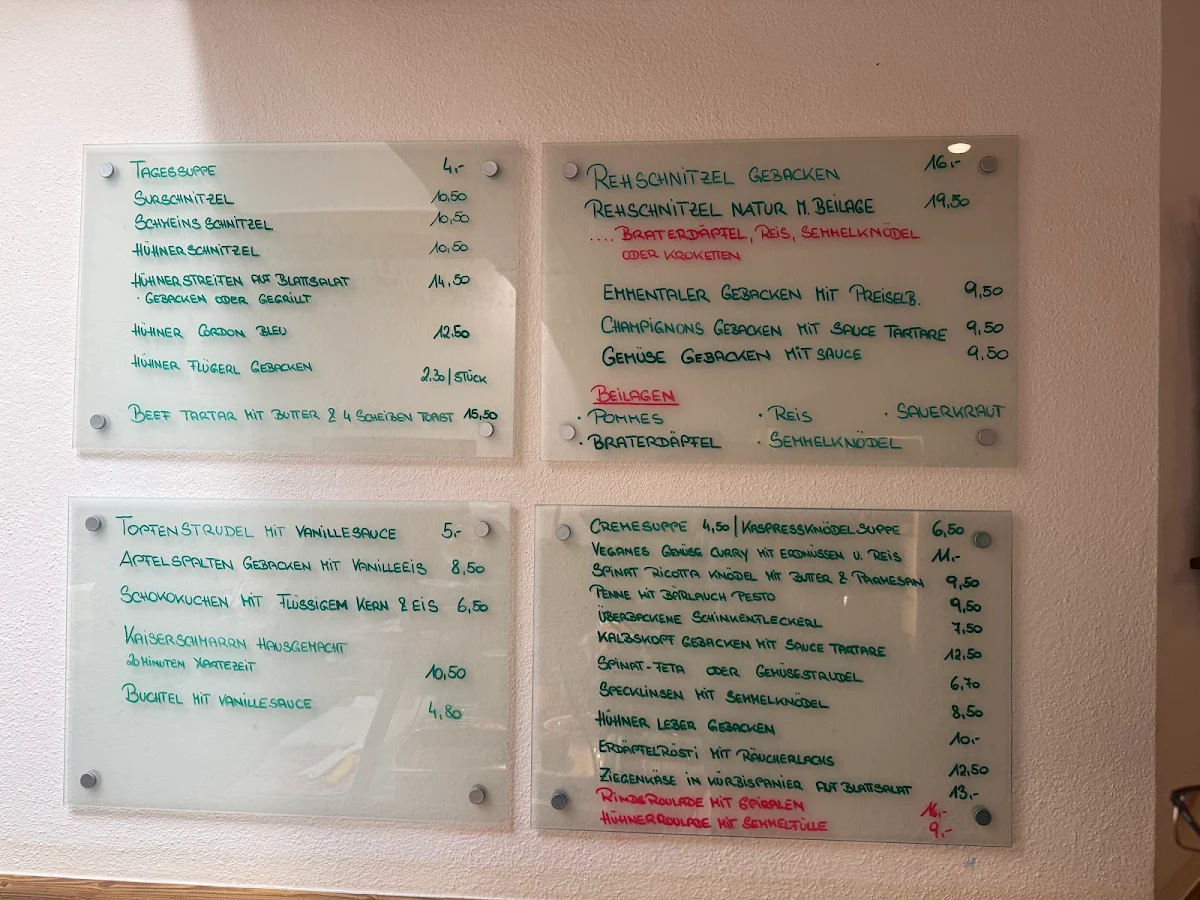 TAGESSUPPE 4,-
SURSCHNITZEL 10,50
SCHWEINS SCHNITZEL 10,50
HÜHNERSCHNITZEL 10,50
HÜHNERSTREIFEN AUF BLATTSALAT 14,50
· GEBACKEN ODER GEGRILLT
HÜHNER CORDON BLEU 12,50
HÜHNER FLÜGERL GEBACKEN 2,30/STÜCK
BEEF TARTAR MIT BUTTER & 4 SCHEIBEN TOAST 15,50
REHSCHNITZEL GEBACKEN 16,-
REHSCHNITZEL NATUR M. BEILAGE 19,50
.... BRATERDÄPFEL, REIS, SEMMELKNÖDEL
ODER KROKETTEN
EMMENTALER GEBACKEN MIT PREISELB. 9,50
CHAMPIGNONS GEBACKEN MIT SAUCE TARTARE 9,50
GEMÜSE GEBACKEN MIT SAUCE 9,50
BEILAGEN
· POMMES · REIS · SAUERKRAUT
· BRATERDÄPFEL · SEMMELKNÖDEL
TOPFENSTRUDEL MIT VANILLESAUCE 5,-
APFELSPALTEN GEBACKEN MIT VANILLEEIS 8,50
SCHOKOKUCHEN MIT FLÜSSIGEM KERN & EIS 6,50
KAISERSCHMARRN HAUSGEMACHT
20 MINUTEN WARTEZEIT 10,50
BUCHTEL MIT VANILLESAUCE 4,80
CREMESUPPE 4,50 | KASPRESSKNÖDELSUPPE 6,50
VEGANES GEMÜSE CURRY MIT ERDNÜSSEN U. REIS 11,-
SPINAT RICOTTA KNÖDEL MIT BUTTER & PARMESAN 9,50
PENNE MIT BÄRLAUCH PESTO 9,50
ÜBERBACKENE SCHINKENFLECKERL 7,50
KALBSKOPF GEBACKEN MIT SAUCE TARTARE 12,50
SPINAT-FETA ODER GEMÜSESTRUDEL 6,70
SPECKLINSEN MIT SEMMELKNÖDEL 8,50
HÜHNER LEBER GEBACKEN 10,-
ERDÄPFELRÖSTI MIT RÄUCHERLACHS 12,50
ZIEGENKÄSE IN KÜRBISPANIER AUF BLATTSALAT 13,-
RINDSROULADE MIT SPIRALEN 16,-
HÜHNERROULADE MIT SEMMELFÜLLE 9,-